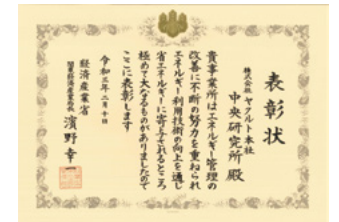 表彰状
株式会社ヤクルト本社
中央研究所殿
貴事業所はエネルギー管理の
改善に不断の努力を重ねられ
エネルギー利用技術の向上を通し
省エネルギーに寄与されるところ
極めて大なるものがありましたので
ここに表彰します
令和三年二月十日
経済産業省
関東経済産業局長
濱野幸